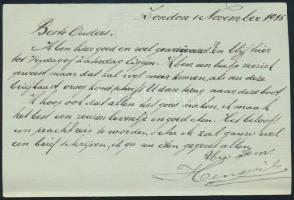 London 1 November 1915
Beste Ouders.
Alhier goed en wel gearriveerd en blijf hier
tot Vrijdag of Zaterdag liggen. Ik ben een beetje zeeziek
geweest maar dat zal wel meer komen, als nu deze
briefkaart
Ik hoop ook dat allen het goed maken, ik maak
het best een leventje en goed eten. Het belooft
een pracht reis te worden. Nu ik zal gauw wel
een brief schrijven, ik ga nu allen
Uw Zoon
Hendrik